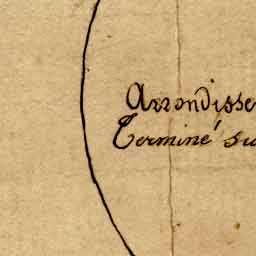 Arrondisse
Terminé su